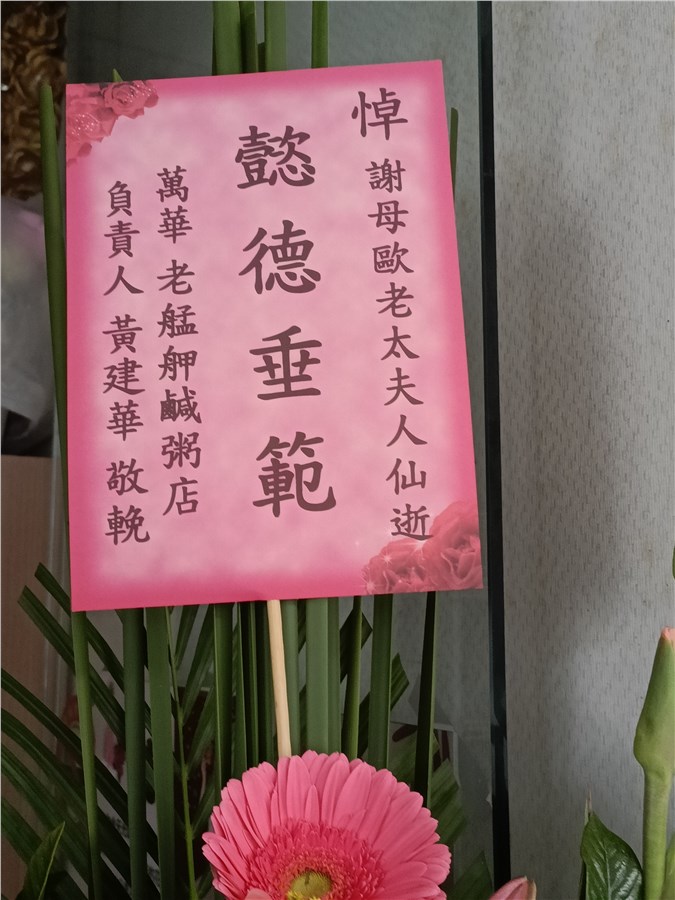 悼 謝母歐老太夫人仙逝
懿德垂範
萬華 老艋舺鹹粥店
負責人 黃建華 敬輓